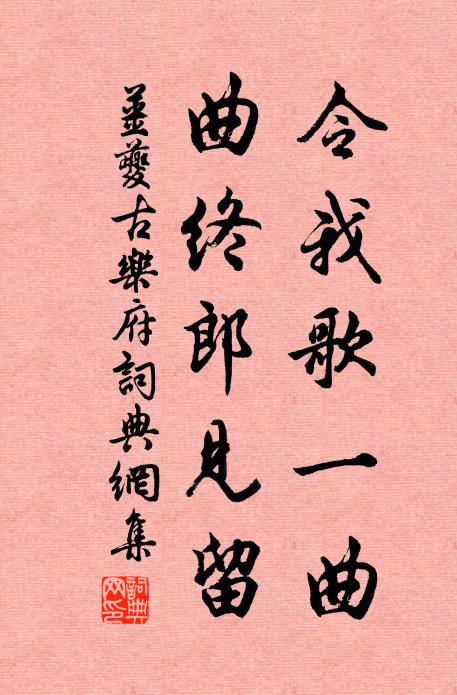 令我歌一曲
曲終郎見留
姜夔古樂府詞典網集
詞典网印